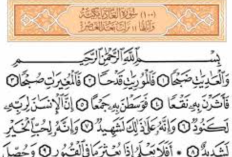 (١٠٠) سُورَةُ العَادِيَاتِ مَكِّيَّة
وَآيَاتُهَا ١١ نَزَلَتْ بَعْدَ العَصْرِ
بِسْمِ اللَّهِ الرَّحْمَٰنِ الرَّحِيمِ
وَالْعَادِيَاتِ ضَبْحًا ۝١ فَالْمُورِيَاتِ قَدْحًا ۝٢ فَالْمُغِيرَاتِ صُبْحًا ۝٣
فَأَثَرْنَ بِهِ نَقْعًا ۝٤ فَوَسَطْنَ بِهِ جَمْعًا ۝٥ إِنَّ الْإِنسَانَ لِرَبِّهِ
لَكَنُودٌ ۝٦ وَإِنَّهُ عَلَىٰ ذَٰلِكَ لَشَهِيدٌ ۝٧ وَإِنَّهُ لِحُبِّ الْخَيْرِ
لَشَدِيدٌ ۝٨ أَفَلَا يَعْلَمُ إِذَا بُعْثِرَ مَا فِي الْقُبُورِ ۝٩ وَحُصِّلَ